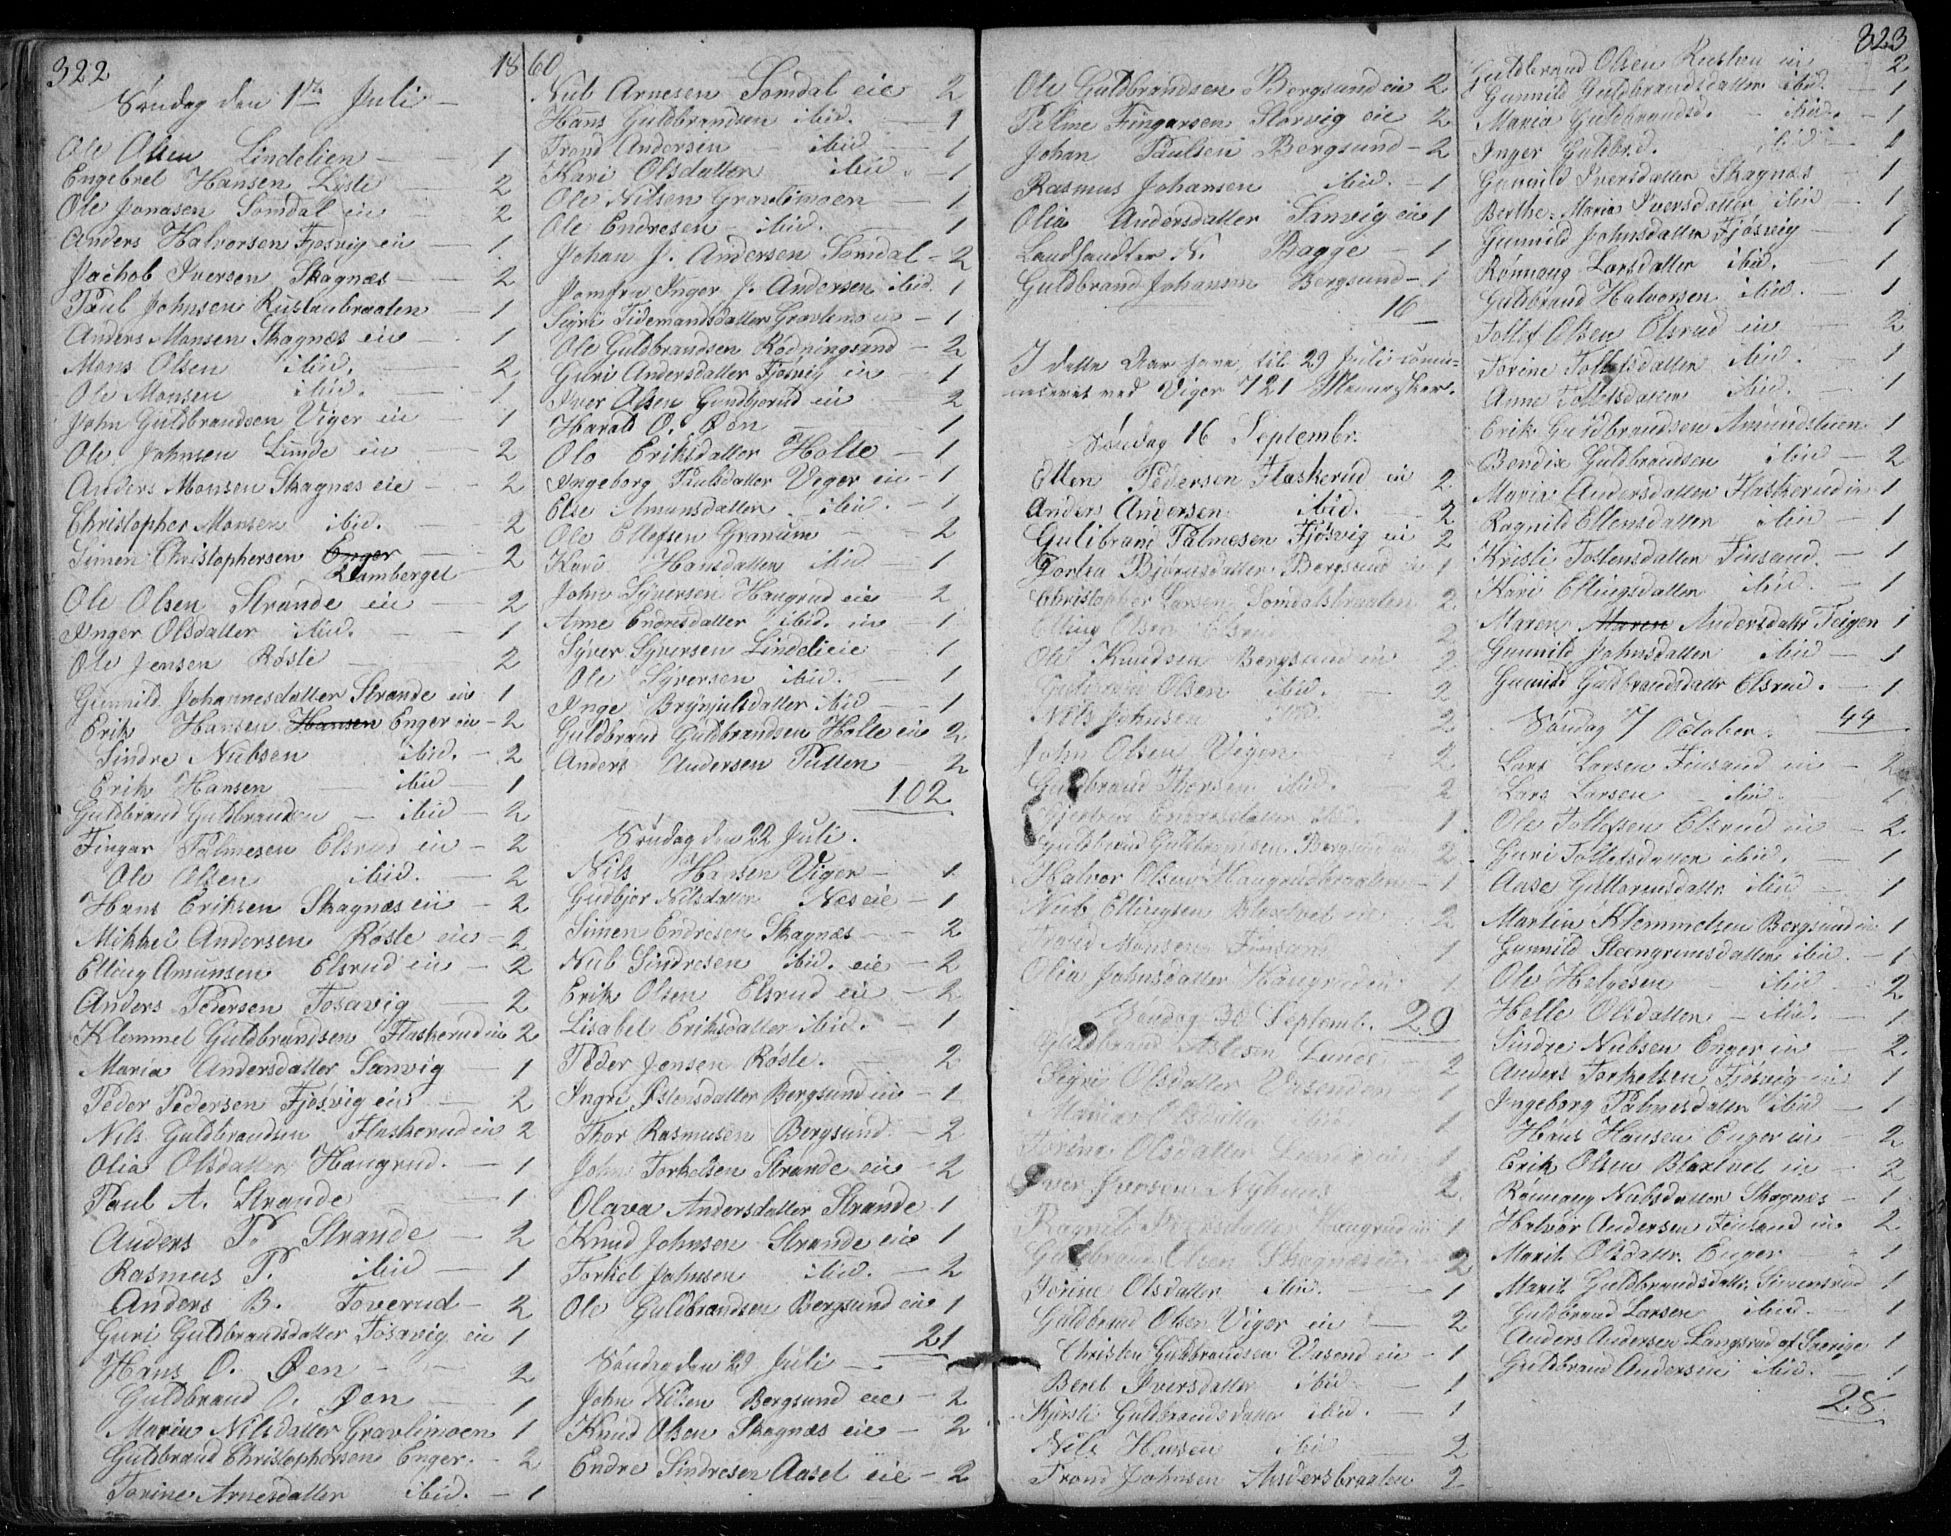 322
1860
Søndag den 1ste Juli
Ole Olsen Lindelien 1
Engebret Hansen Liste 2
Ole Jonasen Somdal eie 2
Anders Halvorsen Fjøsvig eie 1
Jachob Iversen Skagnæs 2
Paul Johnsen Rustenbraaten 1
Anders Monsen Skagnæs eie 1
Mons Olsen ibid. 2
Ole Monsen ibid. 1
John Guldbrandsen Viger eie 1
Ole Johnsen Lunde eie 2
Anders Monsen Skagnæs eie 2
Christopher Monsen ibid. 2
Simen Christophersen Enger 2
Damberget
Ole Olsen Strande eie 2
Inger Olsdatter ibid. 1
Ole Jensen Røsle 2
Gunnild Johannesdatter Strande eie 1
Erik Hansen Hansen Enger eie 2
Sindre Nubsen ibid. 2
Erik Hansen ibid 1
Guldbrand Guldbrandsen ibid 2
Fingar Palmesen Elsrud eie 2
Ole Olsen ibid. 2
Hans Eriksen Skagnæs eie 2
Mikkel Andersen Røsle eie 2
Elling Amunsen Elsrud eie 2
Anders Pedersen Fosavig 2
Klemmel Guldbrandsen Flaskerud eie 2
Maria Andersdatter Sanvig 1
Peder Pedersen Fjøsvig eie 2
Nils Guldbrandsen Flaskerud eie 2
Olia Olsdatter Haugrud. 1
Paul A. Strande 1
Anders P. Strande 2
Rasmus P. ibid 1
Anders B. Toverud 2
Guri Guldbrandsdatter Fosavig eie 1
Hans O. Øen 2
Guldbrand O. Øen 1
Maria Nilsdatter Gravlimoen 1
Guldbrand Christophersen Enger. 2
Torine Arnesdatter ibid. 1
Nub Arnesen Somdal eie 2
Hans Guldbrandsen ibid. 1
Trond Andersen ibid 1
Kari Olsdatter ibid. 1
Ole Nilsen Gravlimoen 1
Ole Endresen ibid. 1
Johan J. Andersen Somdal 2
Jomfru Inger J. Andersen ibid. 1
Sigri Tidemandsdatter Gravlimoen 1
Ole Guldbrandsen Rødningsand 2
Guri Andersdatter Fjøsvig eie 1
Iver Olsen Gundjerud eie 2
Harald O. Øen 1
Olo Eriksdatter Holte 1
Ingeborg Paulsdatter Veger eie 1
Else Amunsdatter ibid. 1
Ole Ellefsen Granum 2
Kari Hansdatter ibid 1
John Syversen Haugrud eie 2
Anne Endresdatter ibid. eie 1
Syver Syversen Lindelieie 1
Ole Syversen ibid. 1
Inge Brynjulsdatter ibid 1
Guldbrand Guldbrandsen Holte eie 2
Anders Andersen Putten 2
102
Søndag den 22 Juli.
Nils Hansen Viger 1
Gudbjør Nilsdatter Nes eie 1
Simen Endresen Skagnæs 2
Nub Sindresen ibid. eie 2
Erik Olsen Elsrud eie 2
Lisabet Eriksdatter ibid. 1
Peder Jensen Røsle. 2
Ingri Østensdatter Bergsund eie 1
Thor Rasmusen Bergsund. 2
John Torkelsen Strande eie 2
Olava Andersdatter Strande 1
Knud Johnsen Strande eie 1
Torkel Johnsen ibid. 2
Ole Guldbrandsen Bergsund eie 1
21
Søndag den 29 Juli
John Nilsen Bergsund eie 2
Knud Olsen Skagnæs eie 2
Endre Sindresen Aaset eie 2
323
Ole Guldbrandsen Bergsund eie 2
Palme Fingarsen Storvig eie 2
Johan Paulsen Bergsund 2
Rasmus Johansen ibid. 1
Olia Andersdatter Sanvig eie 1
Landhandler N. Bagge 1
Guldbrand Johansen Bergsund 1
16
I dette Aar have til 29 Juli commu-
niceret ved Viger 721 Mennesker.
Søndag 16 Septembr.
Ellen Pedersen Flaskerud eie 2
Anders Andersen ibid. 2
Gulibrand Palmesen Fjøsvig eie 2
Torlea Bjørnsdatter Bergsund 1
Christopher Larsen Somdalsbraaten 2
Elling Olsen Elsrud 2
Ole Knudsen Bergsund eie 2
Guldbrand Olsen ibid. 2
Nils Johnsen ibid 2
John Olsen Vigen 2
Guldbrand Thorsen ibid. 2
Endresdatter ibid. 1
Guldbrand Guldbrandsen Bergsund 2
Halvor Olsen Haugrudbraaten 1
Nub Ellingsen Blextvet eie 2
Trond Monsen Finsand 1
Olia Johnsdatter Haugrud eie 1
Søndag 30 Septemb. 29
Guldbrand Aslesen Lunde 2
Sigri Olsdatter 1
Maria Olsdatter ibid 1
Torine Olsdatter Lunde 1
Iver Iversen Nyhuus 2
Ragnil Iversdatter Haugrud 1
Guldbrand Olsen Skagnæs 2
Torine Olsdatter ibid. 1
Guldbrand Olsen Viger eie 2
Christen Guldbrandsen Vasend eie 1
Beret Iversdatter ibid. 1
Kjersti Guldbrandsdatter ibid. 1
Nils Hansen ibid 2
Trond Johnsen Andersbraaten 2
Guldbrand Olsen Rusten eie 2
Gunnild Guldbrandsdatter ibid. 1
Maria Guldbrandsd. ibid. 1
Inger Guldbr.d. ibid 1
Gunnild Iversdatter Skagnæs 1
Berthe Maria Iversdatter ibid 1
Gunnild Johnsdatter Fjøsvig 1
Rønnaug Larsdatter ibid. 1
Guldbrand Halvorsen ibid. 1
Tollef Olsen Elsrud eie 2
Torine Tollefsdatter ibid. 1
Anne Tollefsdatter ibid. 1
Erik Guldbrandsen Amundstuen 1
Bendix Guldbrandsen ibid 2
Maria Andersdatter Flaskerud eie 1
Ragnild Ellensdatter ibid 1
Kristi Tostensdatter Finsand. 1
Kari Ellingsdatter ibid. 1
Maren Maren Andersdattr Feigen 1
Gunnild Johnsdatter ibid 1
Gunnild Guldbrandsdattr Elsrud. 1
Søndag 7/ October. 44
Lars Larsen Finsand eie 2
Lars Larsen ibid. 1
Ole Tollefsen Elsrud eie 2
Guri Tollefsdatter ibid. 1
Aase Guttormsdattr ibid 1
Martin Klemmetsen Bergsund eie 1
Gunnild Steengrimsdatter ibid. 1
Ole Helgesen ibid 2
Helle Olsdatter ibid. 1
Sindre Nubsen Enger eie 2
Anders Torkelsen Fjøsvig eie 1
Ingeborg Palmesdatter ibid 1
Hans Hansen Enger eie 2
Erik Olsen Blextvet eie 2
Rønnaug Nubsdatter Skagnæs 1
Halvor Andersen Finsand eie 2
Marit Olsdattr. Enger 1
Marit Guldbrandsdattr Simensrud 1
Guldbrand Larsen ibid. 1
Anders Andersen Langsrud af Sverige 1
Guldbrand Andersen ibid. 1
28.